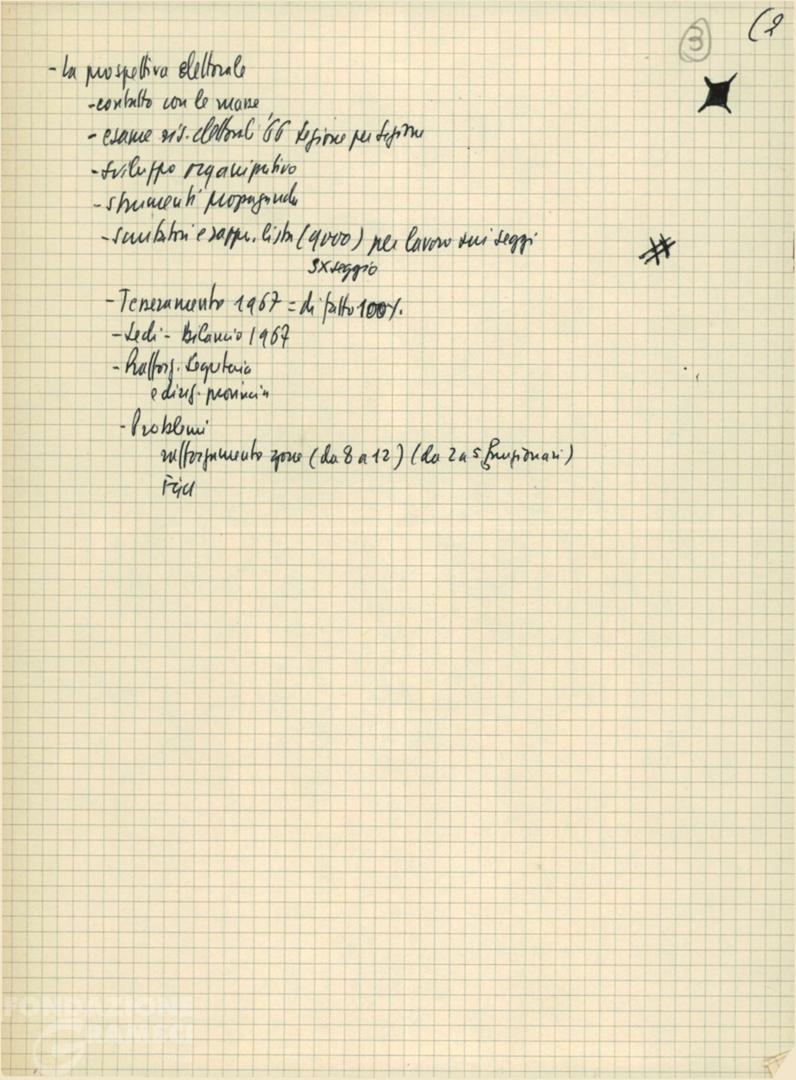 3
(2
- La prospettiva elettorale
- contatto con le masse
- esame ris. elettorali '66 sezione per sezione
- sviluppo organizzativo
- strumenti propaganda
- scrutatori e rappr. lista (9000) per lavoro sui seggi
3 x seggio
- Tesseramento 1967 = di fatto 100%.
- Sedi - Bilancio 1967
- Rafforz. Segreteria
e direz. provincia
- Problemi
rafforzamento zone (da 8 a 12) (da 2 a 5 funzionari)
FGCI
FONDAZIONE
GRAMSCI